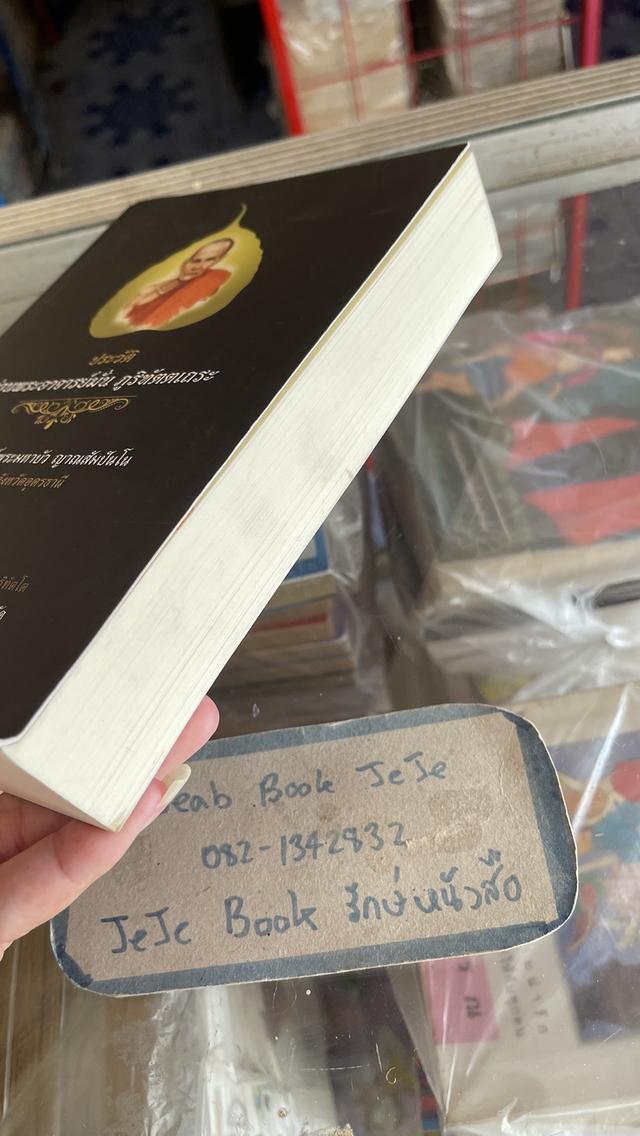 ประวัติ
ท่านพระอาจารย์มั่น ภูริทัตตเถระ
พระมหาบัว ญาณสัมปันโน
จังหวัดอุดรธานี
Book JeJe
082-1342832
JeJe Book รักษ์หนังสือ